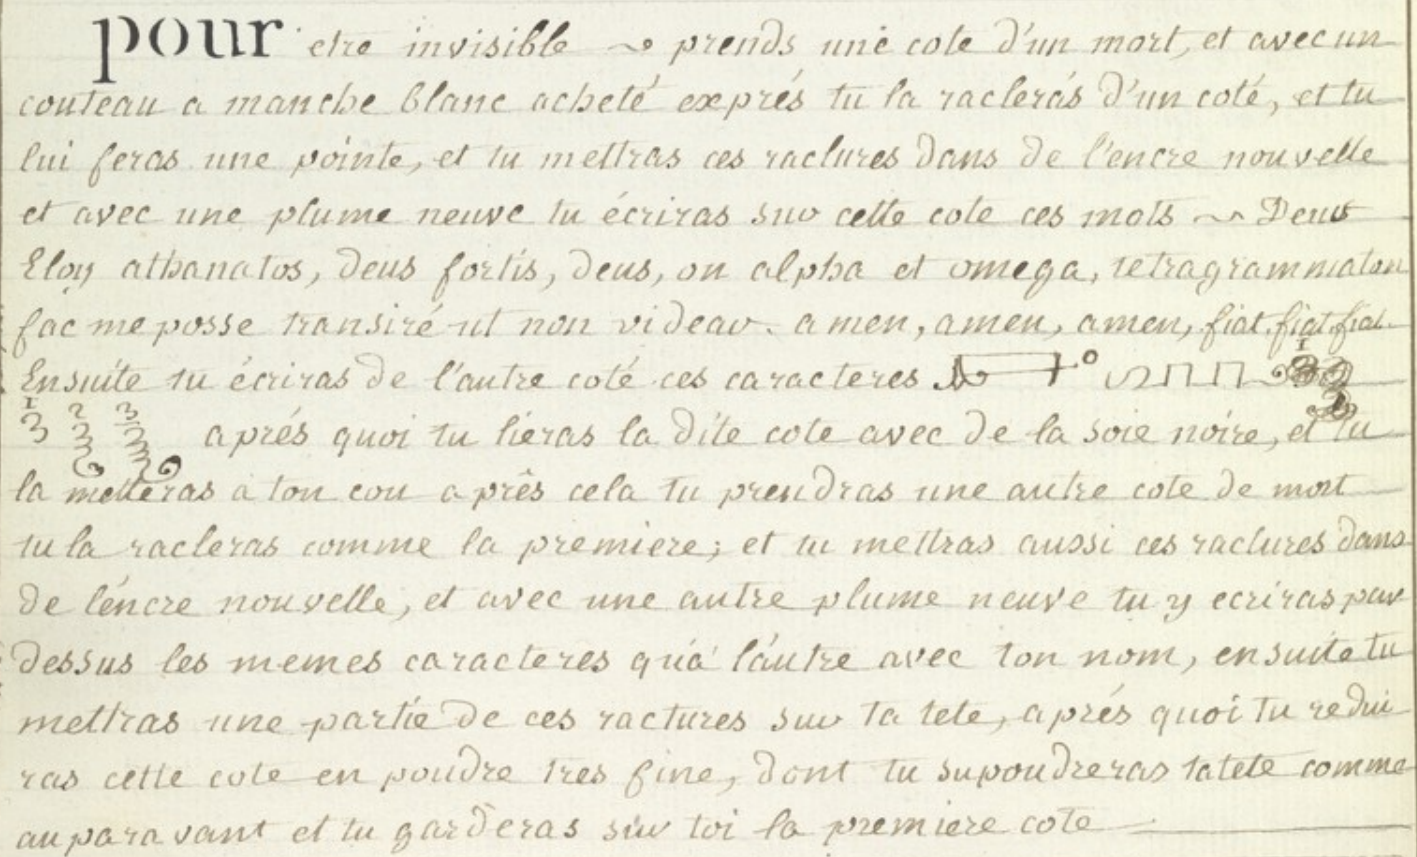 pour etre invisible prends une cote d'un mort, et avec un
couteau a manche blanc acheté exprés tu la racleras d'un coté, et tu
lui feras une pointe, et tu mettras ces raclures dans de l'encre nouvelle
et avec une plume neuve tu écriras sur cette cote ces mots Deus
Eloy athanatos, deus fortis, deus, on alpha et omega, tetragrammaton
fac me posse transiré ut non videar. amen, amen, amen, fiat, fiat, fiat.
Ensuite tu écriras de l'autre coté ces caracteres
1 2 3 aprés quoi tu lieras la dite cote avec de la soie noire, et tu
la metteras a ton cou aprês cela tu prendras une autre cote de mort
tu la racleras comme la premiere; et tu mettras aussi ces raclures dans
de l'éncre nouvelle, et avec une autre plume neuve tu y ecriras par
dessus les memes caracteres qu'a l'autre avec ton nom, ensuite tu
mettras une partie de ces ractures sur ta tete, aprés quoi tu redui
ras cette cote en poudre tres fine, dont tu supoudreras ta tete comme
auparavant et tu garderas sur toi la premiere cote